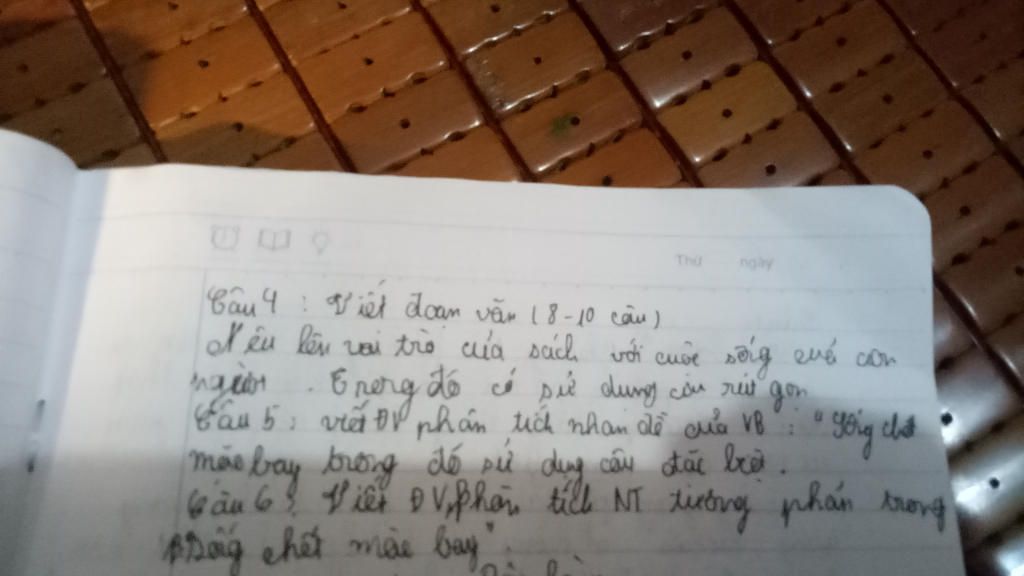 Thứ ngày
Câu 4 : Viết đoạn văn (8-10 câu)
Nêu lên vai trò của sách với cuộc sống của con
người . Trong đó có sử dụng câu rút gọn
Câu 5 : viết ĐV phân tích nhan đề của VB : "Sống chết
mặc bay trong đó sử dụng câu đặc biệt .
Câu 6 : Viết ĐV phân tích NT tương phản trong
"Sống chết mặc bay" .